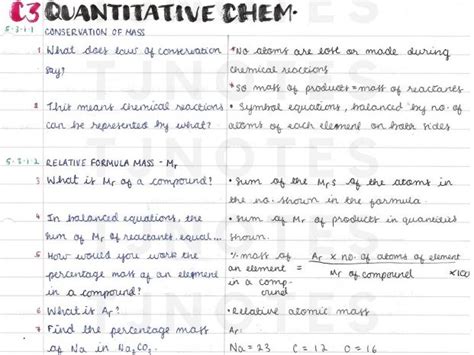 C3 QUANTITATIVE CHEM.
5.3.1.1 CONSERVATION OF MASS
1 What does law of conservation say?
• No atoms are lost or made during
chemical reactions
* so mass of products = mass of reactants
2 This means chemical reactions
can be represented by what?
• Symbol equations, balanced by no. of
atoms of each element on both sides
5.3.1.2 RELATIVE FORMULA MASS - Mr
3 What is Mr of a compound?
• Sum of the Mrs of the atoms in
the no. shown in the formula.
4 In balanced equations, the
sum of Mr of reactants equal...
• Sum of Mr of products in quantities
shown.
5 How would you work the
percentage mass of an element
in a compound?
% mass of
an element =
in a comp-
ound
Ar x no. of atoms of element
Mr of compound
x100
6 What is Ar?
• Relative atomic mass
7 Find the percentage mass
of Na in Na2CO3.
Ar:
Na = 23 C = 12 O = 16
TJNOTES
TJNOTES
TJNOTES
TJNOTES